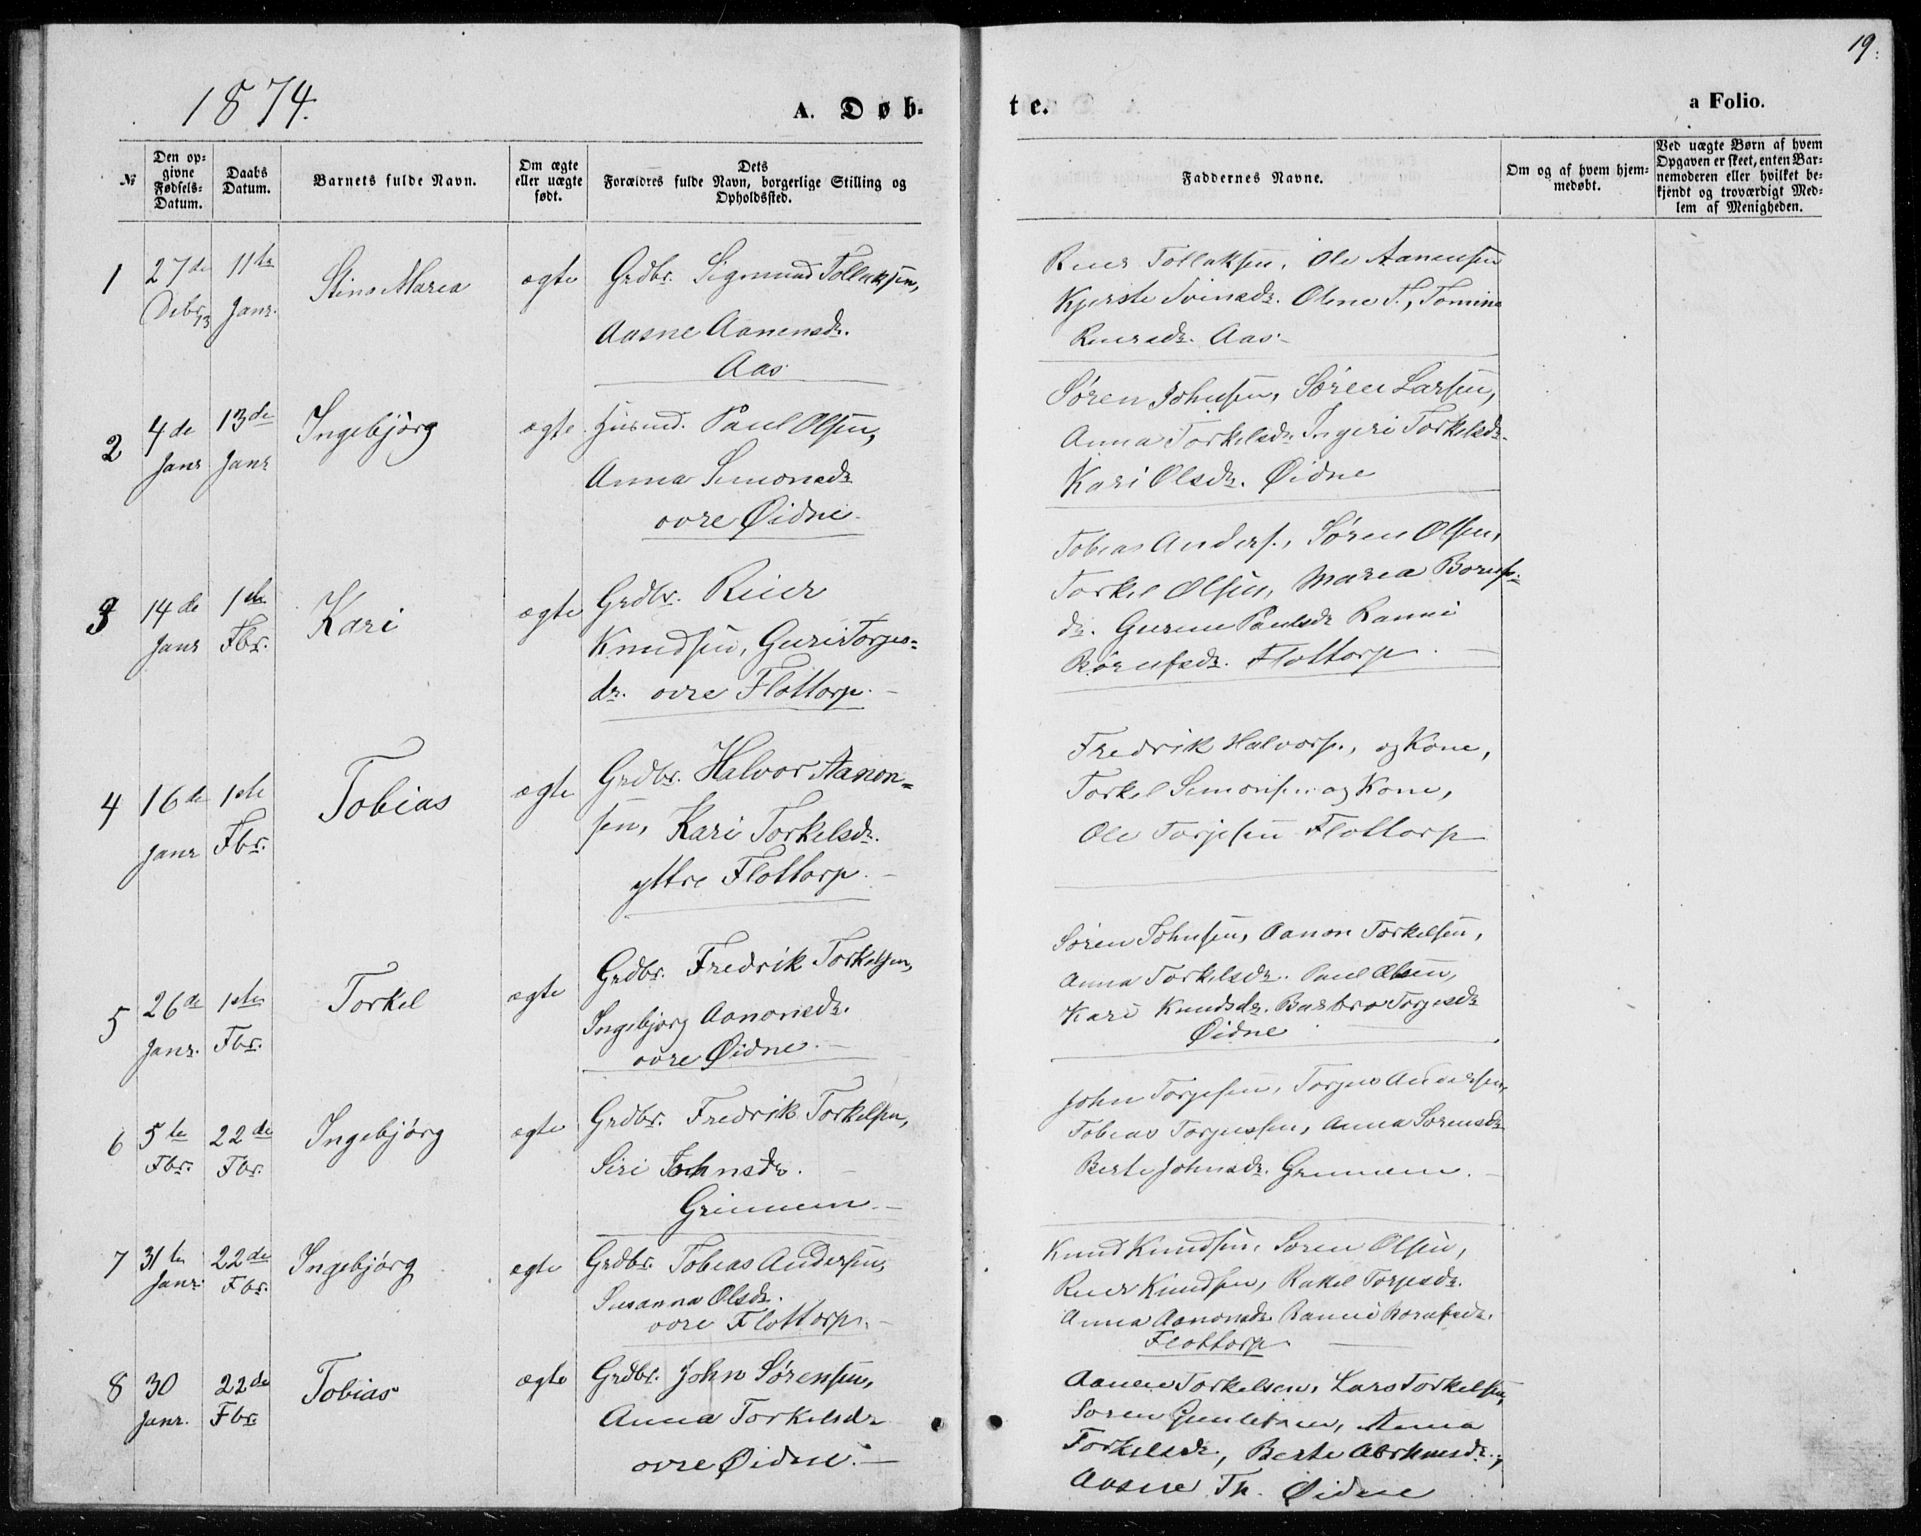 19.
1874.
A. Døb-
te.
a Folio.
№
Den op-
givne
Fødsels-
Datum.
Daabs
Datum.
Barnets fulde Navn.
Om ægte
eller uægte
født.
Dets
Forældres fulde Navn, borgerlige Stilling og
Opholdssted.
Faddernes Navne.
Om og af hvem hjem-
medøbt.
Ved uægte Børn af hvem
Opgaven er skeet, enten Bar-
nemoderen eller hvilket be-
kjendt og troværdigt Med-
lem af Menigheden.
1
27de
Debr 73
11te
Janr.
Stine Marea
ægte
Grdbr. Sigmund Tollaksen,
Aasne Aanensdr.
Aas
Reier Tollaksen, Ole Aanensen
Kjerste Sveinsdr. Olene T., Tomine
Reiersdr. Aas
2
4de
Janr
13de
Janr
Ingebjørg
ægte
Husmd. Paul Olsen,
Anna Simonsdr
øvre Øidne
Søren Johnsen, Søren Larsen,
Anna Torkelsdr. Ingeri Torkelsdr.
Kari Olsdr. Øidne
3
14de
Janr
1ste
Fbr.
Kari
ægte
Grdbr. Reier
Knudsen, Guri Torjes-
dr. øvre Flottorp.
Tobias Anders., Søren Olsen,
Torkel Olsen, Marea
dr. Gurine Paulsdr Rannei
Flottorp
4
16de
Janr
1ste
Fbr.
Tobias
ægte
Grdbr. Halvor Aanon-
sen, Kari Torkelsdr.
yttre Flottorp.
Fredrik Halvors., og Kone,
Torkel Simons. og Kone,
Ole Torjesen Flottorp
5
26de
Janr.
1ste
Fbr.
Torkel
ægte
Grdbr. Fredrik Torkelsen,
Ingebjørg Aanonsdr.
øvre Øidne.
Søren Johnsen, Aanon Torkelsen,
Anna Torkelsdr. Paul Olsen,
Kari Knudsdr. Barbro Torjesdr
Øidne
6
5te
Fbr.
22de
Fbr.
Ingebjørg
ægte
Grdbr. Fredrik Torkelsen,
Siri Johnsdr.
Grimnem
John Torjesen, Torjus Andersen,
Tobias Torjussen, Anna Sørensdr
Berte Johnsdr. Grimnem.
7
31te
Janr.
22de
Fbr.
Ingebjørg
ægte
Grdbr. Tobias Andersen,
Susanna Olsdr.
øvre Flottorp.
Knud Knudsen, Søren Olsen,
Reier Knudsen, Rakel Torjesdr.
Anna Aanonsdr. Rannei
Flottorp
8
30
Janr.
22de
Fbr.
Tobias
ægte
Grdbr. John Sørensen,
Anna Torkelsdr
øvre Øidne.
Aanen Torkelsen, Lars Torkelsen,
Søren Gunletsen, Anna
Torkelsdr, Berte
Aasne Th. Øidne